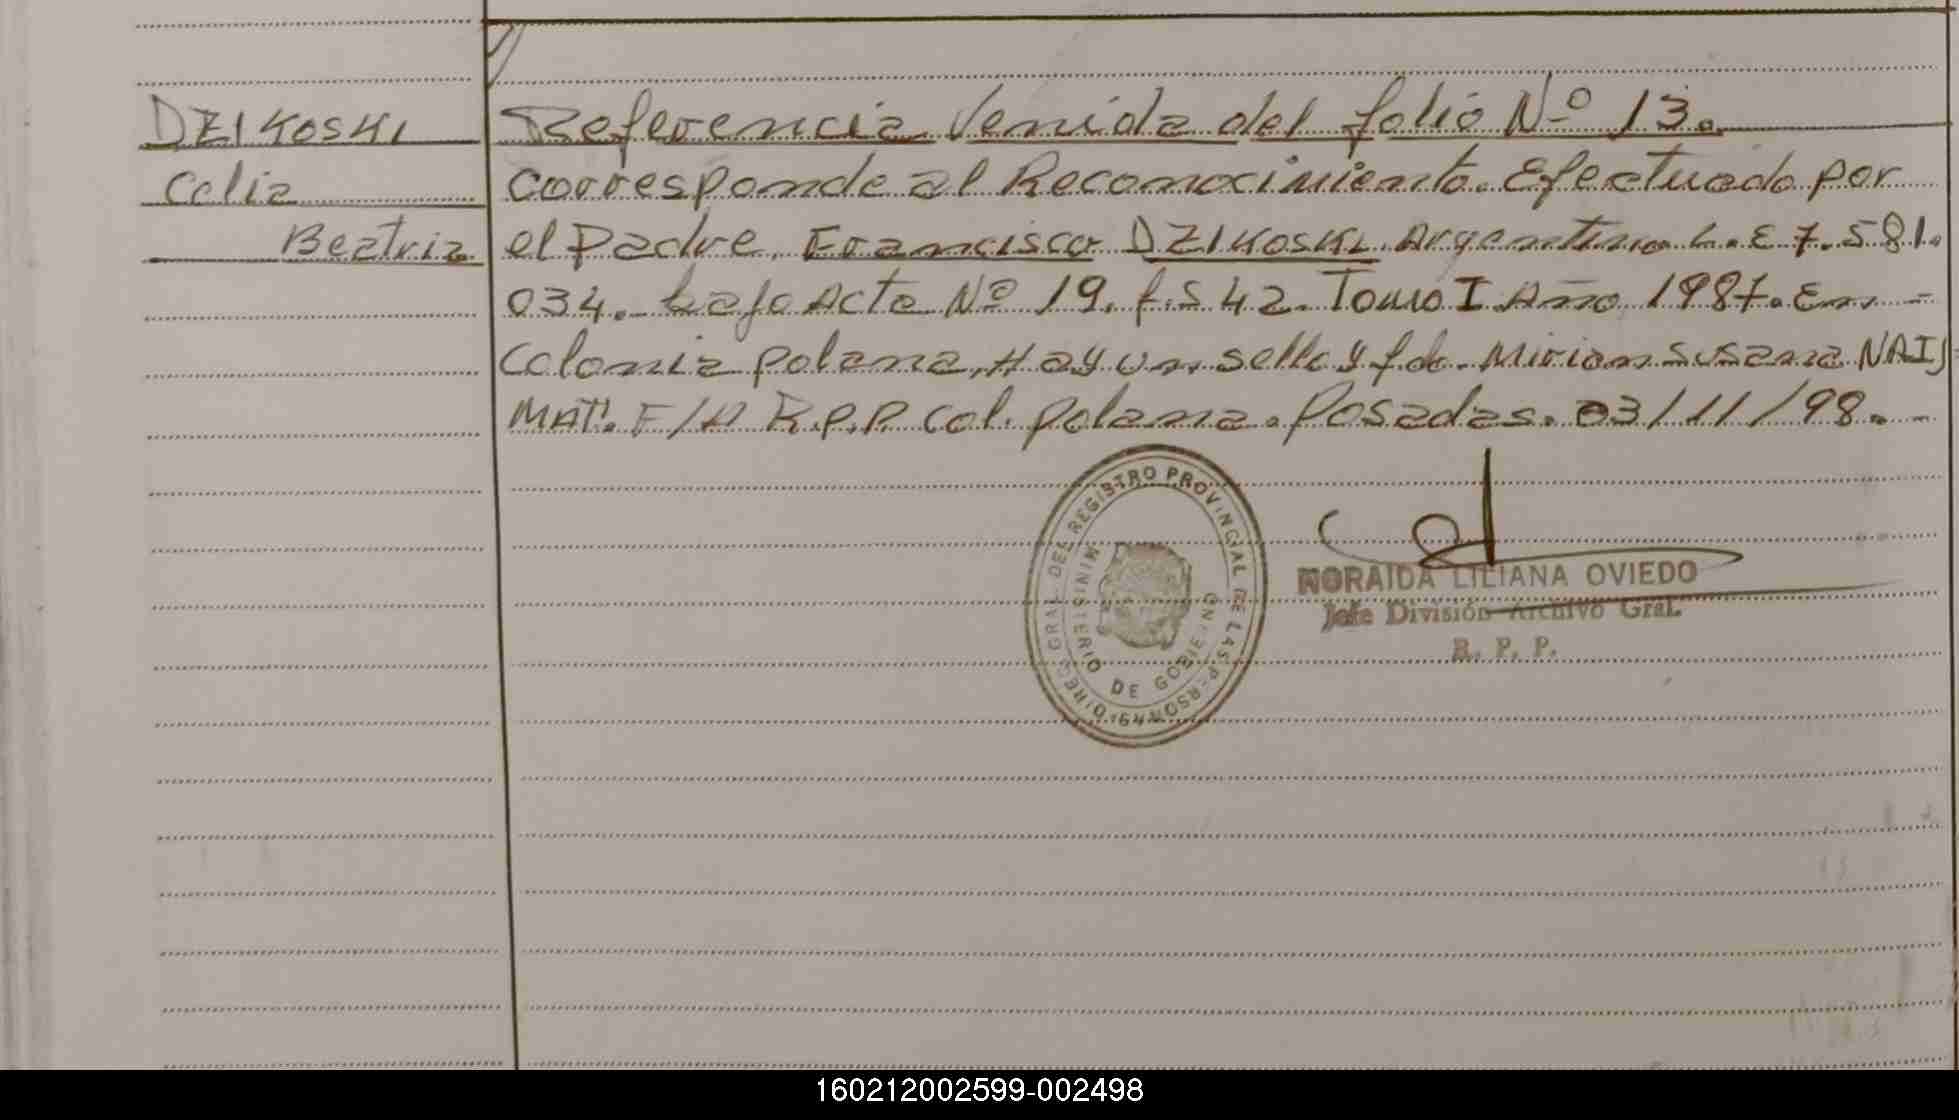 DZIKOSKI
Celia
Beatriz
Referencia Venida del folio Nº 13.
Corresponde al Reconocimiento. Efectuado por
el Padre, Francisco DZIKOSKI. Argentino L.E 7.581.
034. bajo Acta Nº 19. f.s 42. Tomo I Año 1987. En. -
Colonia polana, Hay un sello y fdo. Miriam Susana NAIS
MAT. F/A R.P.P. Col. polana. Posadas. 03/11/98. -
DIREC. GRAL. DEL REGISTRO PROVINCIAL DE LAS PERSONAS
MINISTERIO DE GOBIERNO
NORAIDA LILIANA OVIEDO
Jefe División Archivo Gral.
R. P. P.
160212002599-002498